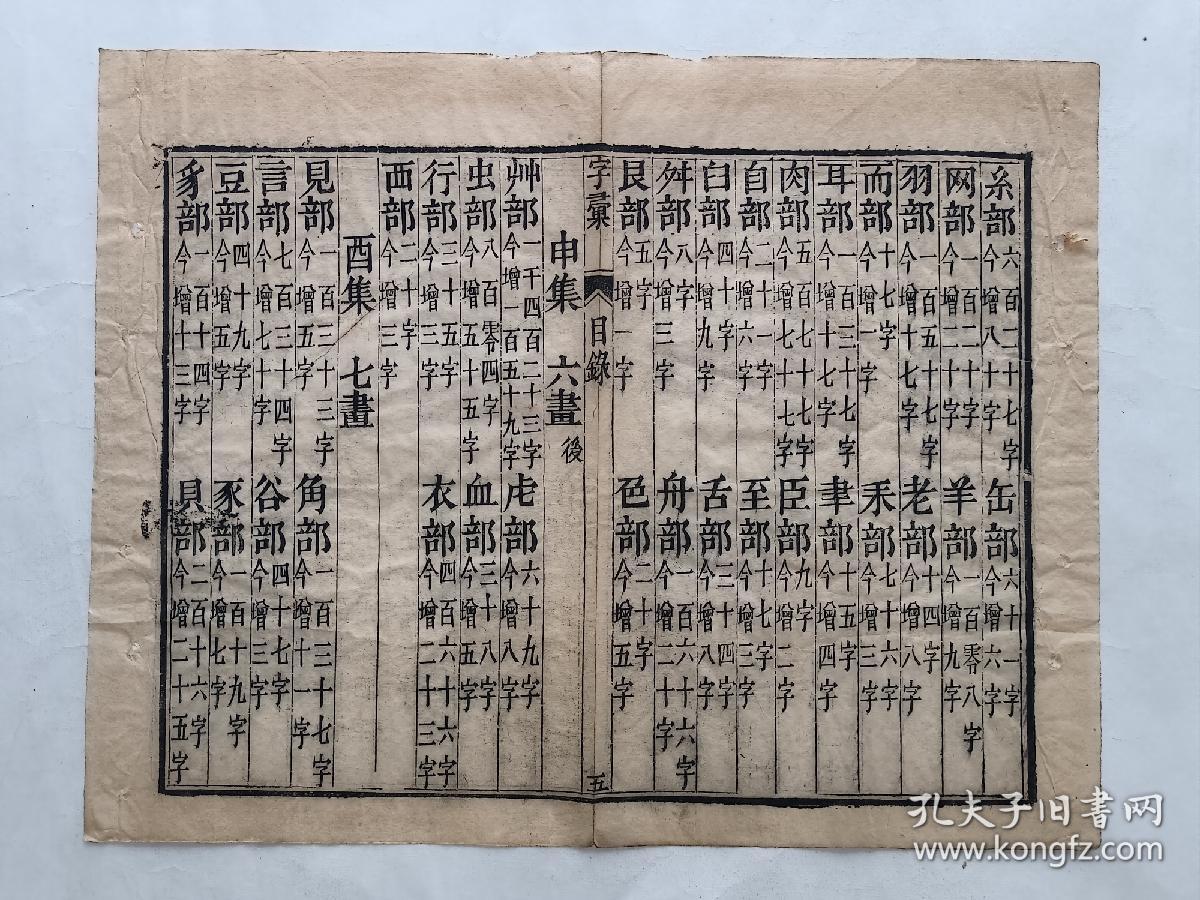 糸部六百二十七字今增八十字 缶部六十一字今增六字
网部一百二十字今增二十字 羊部一百零八字今增九字
羽部一百五十七字今增十七字 老部十四字今增八字
而部十七字今增一字 耒部七十六字今增三字
耳部一百三十七字今增十七字 聿部十五字今增四字
肉部五百七十七字今增七十七字 臣部九字今增二字
自部二十一字今增六字 至部十七字今增三字
臼部四十字今增九字 舌部三十四字今增八字
舛部八字今增三字 舟部一百六十六字今增二十字
艮部五字今增一字 色部二十字今增五字
字彙 目錄 五
申集 六畫後
艸部一千四百二十三字今增一百五十九字 虍部六十九字今增八字
虫部八百零四字今增五十五字 血部三十八字今增五字
行部三十五字今增三字 衣部四百六十六字今增二十三字
襾部二十字今增三字
酉集 七畫
見部一百三十三字今增五字 角部一百三十七字今增十一字
言部七百三十四字今增七十字 谷部四十七字今增三字
豆部四十九字今增五字 豕部一百十九字今增七字
豸部一百十四字今增十三字 貝部二百十六字今增二十五字
孔夫子旧书网
www.kongfz.com